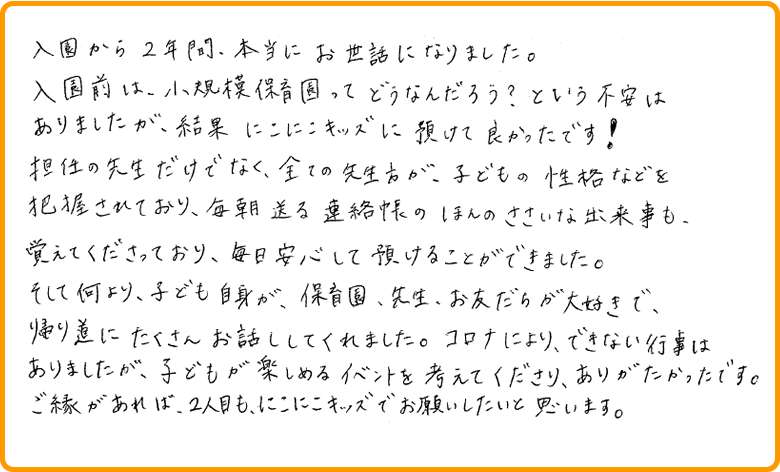 入園から2年間、本当にお世話になりました。
入園前は、小規模保育園ってどうなんだろう?という不安は
ありましたが、結果にこにこキッズに預けて良かったです!
担任の先生だけでなく、全ての先生方が、子どもの性格などを
把握されており、毎朝送る連絡帳のほんのささいな出来事も、
覚えてくださっており、毎日安心して預けることができました。
そして何より、子ども自身が、保育園、先生、お友だちが大好きで、
帰り道にたくさんお話ししてくれました。コロナにより、できない行事は
ありましたが、子どもが楽しめるイベントを考えてくださり、ありがたかったです。
ご縁があれば、2人目も、にこにこキッズでお願いしたいと思います。